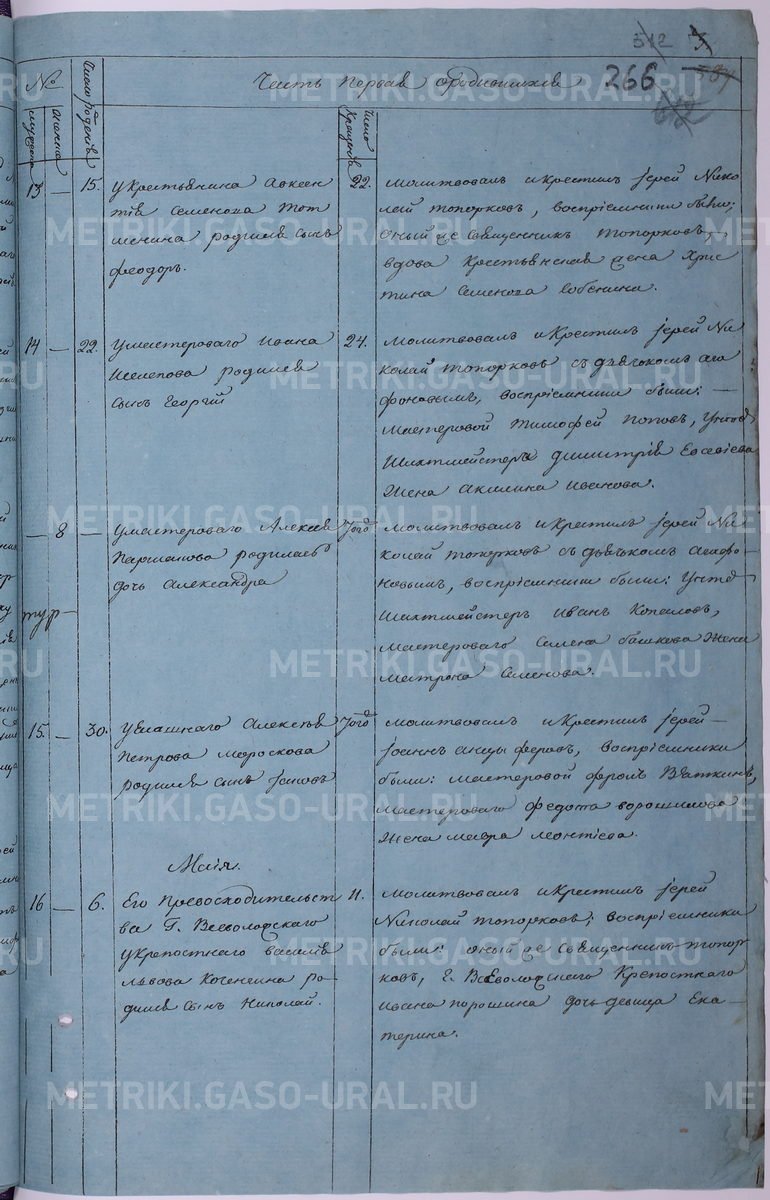 512
266
612
№
мужеска
женска
Число рожденія
Часть первая о родившихся
Число крещенія
13 — 15.
у крестьянина Авксен
тія Семенова Тот
менина родился сынъ
Феодоръ.
22.
молитвовалъ и крестилъ іерей Нико
лай Топорковъ, воспріемники были:
оный же священникъ Топорковъ,
вдова крестьянская жена Хрис
тина Семенова
14 — 22.
у мастероваго Ивана
родился
сынъ Георгій
24.
молитвовалъ и крестилъ іерей Ни
колай Топорковъ съ дьячкомъ Ага
фоновымъ, воспріемники были: —
мастеровой Тимофей Поповъ, Унтеръ
Шихтмейстера Димитрія Евсевіева
жена Акилина Иванова.
— 8 —
у мастероваго Алексея
Паршакова родилась
дочь Александра
Того
молитвовалъ и крестилъ іерей Ни
колай Топорковъ съ дьячкомъ Агафо
новымъ, воспріемники были: Унтеръ
шихтмейстеръ Иванъ Копыловъ,
мастероваго Семена Башкова жена
Матрона Семенова.
тур
15. — 30.
Алексея
Петрова Мороскова
родился сынъ Іаковъ
Того
молитвовалъ и крестилъ іерей —
Іоаннъ Анцыферовъ, воспріемники
были: мастеровой Фролъ Вяткинъ,
мастероваго Федота Ворошилова
жена Мавра Леонтіева.
Маія.
16 — 6.
Его Превосходительст
ва Г. Всеволожскаго
у крепостнаго Василія
Львова Коченгина ро-
дился сынъ Николай.
11.
молитвовалъ и крестилъ іерей
Николай Топорковъ; воспріемники
были: оный же священникъ Топор
ковъ, Г. Всеволожскаго крепостнаго
Ивана Порошина дочь девица Ека —
терина.
METRIKI.GASO-URAL.RU